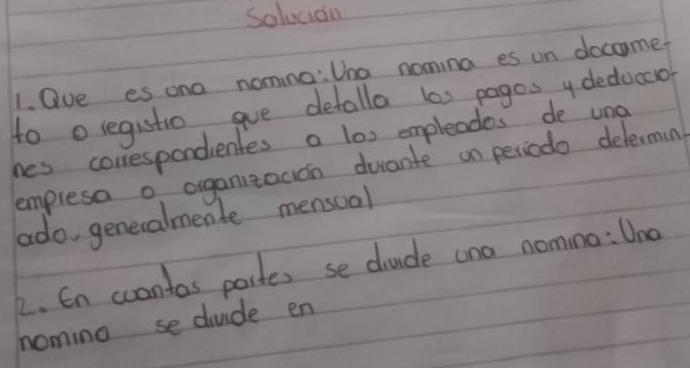 Solución
1. Que es una nomina: Una nomina es un docume-
to o registro que detalla los pagos y deduccio-
nes correspondientes a los empleados de una
empresa o organización durante un periodo determin-
ado, generalmente mensual
2. En cuantas partes se divide una nomina: Una
nomina se divide en